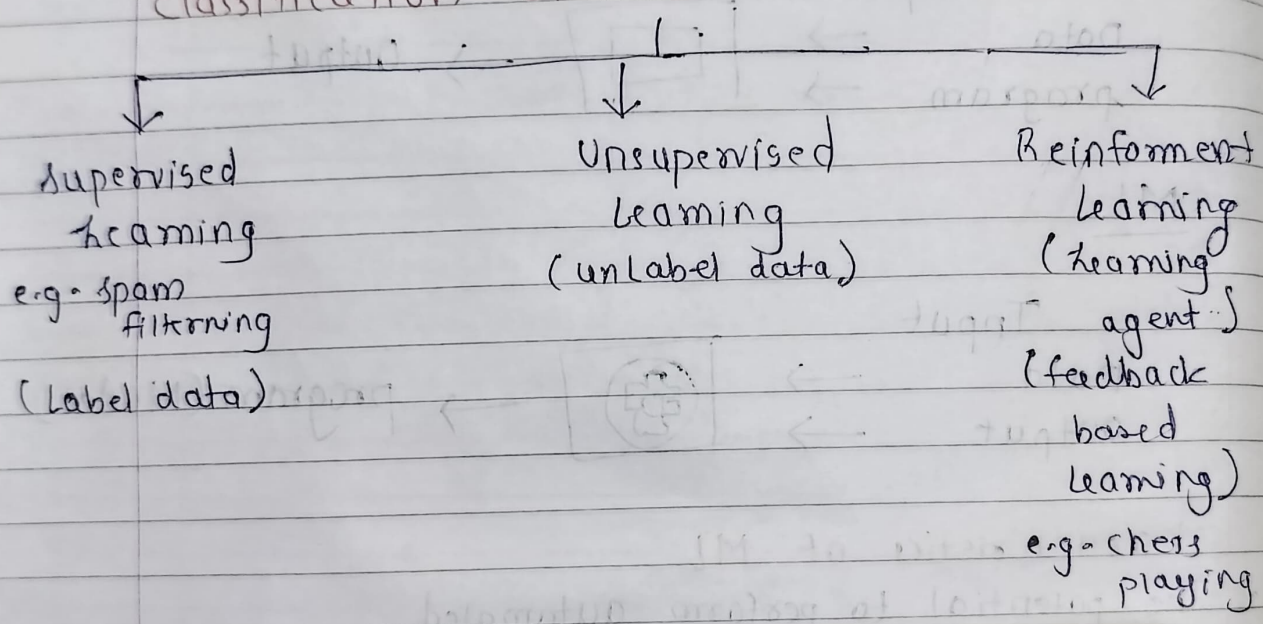 Classification
Supervised
Learning
e.g. spam
filterning
(Label data)
Unsupervised
Learning
(unLabel data)
Reinforment
Learning
(Learning
agent)
(feedback
based
Learning)
e.g. chess
playing